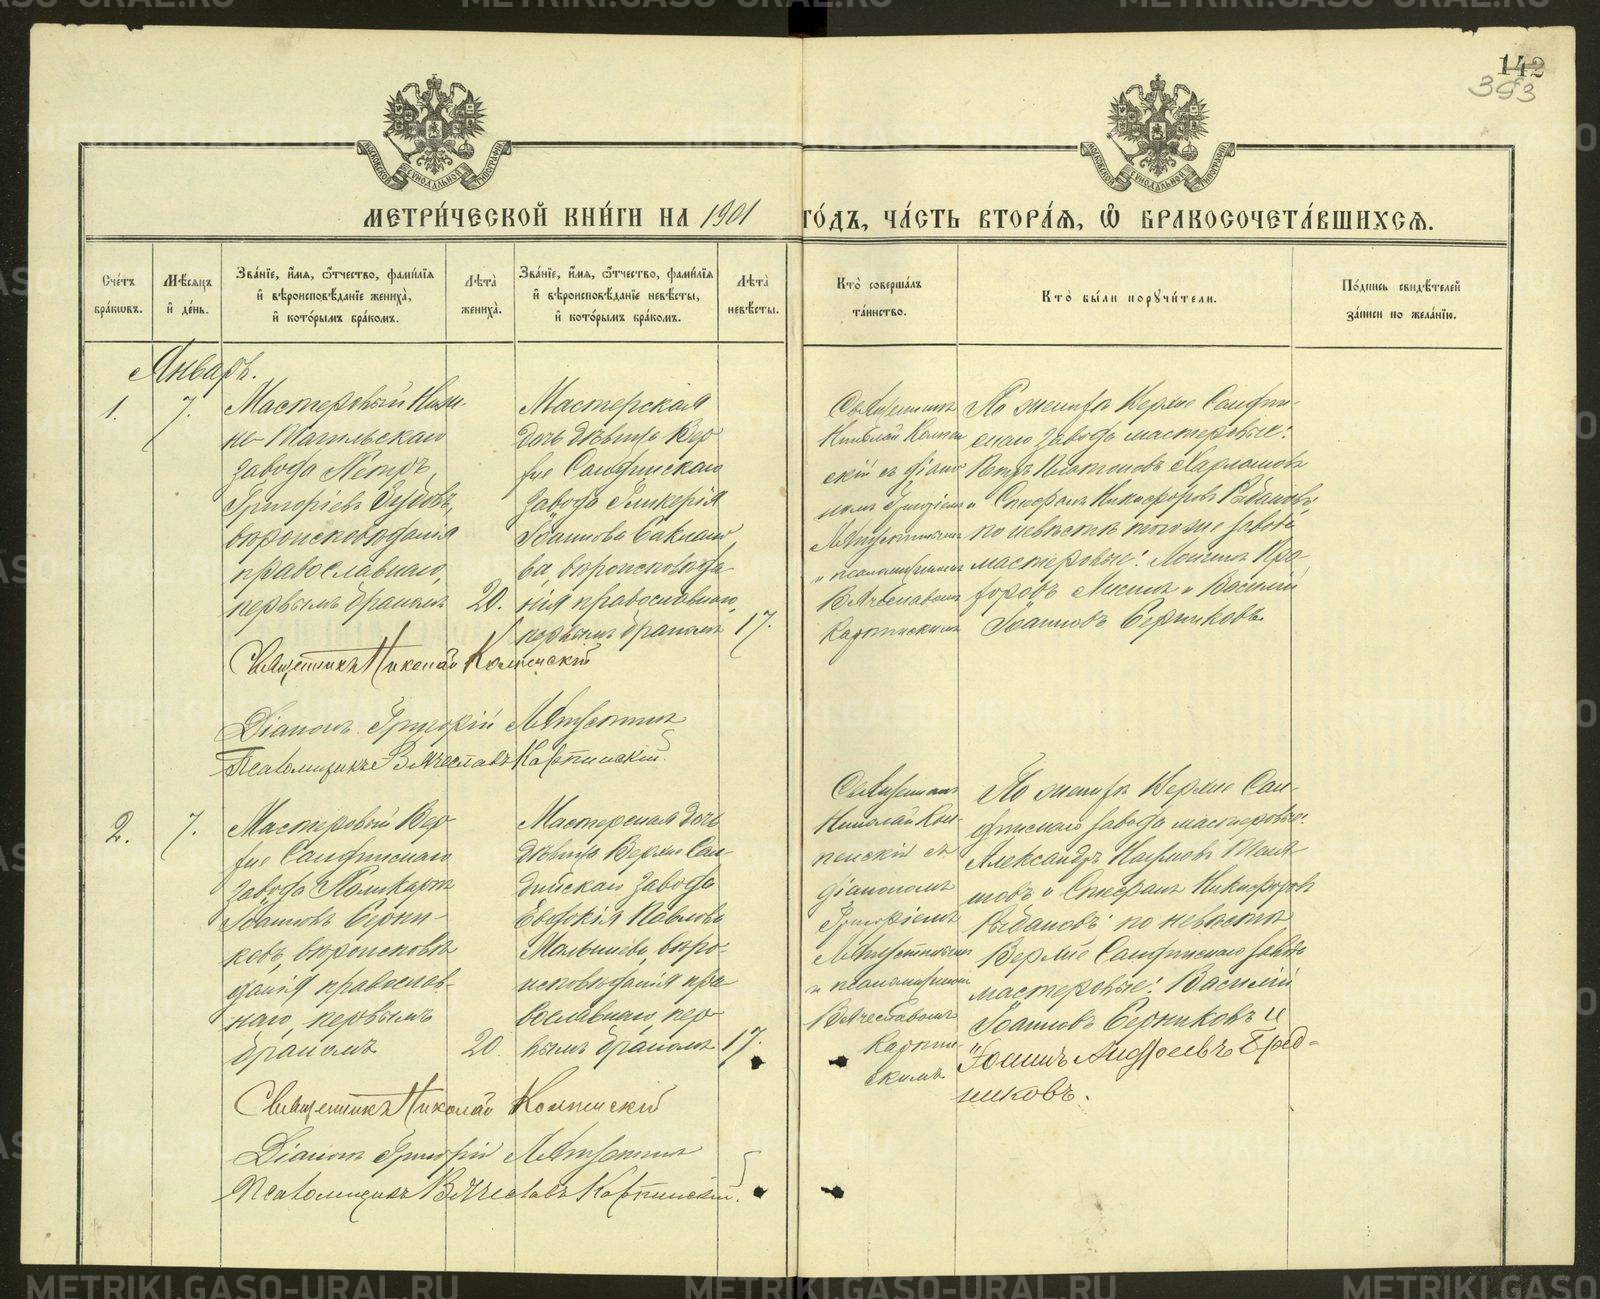 142
393
МОСКОВСКОЙ СѴНОДАЛЬНОЙ ТИПОГРАФІИ
МОСКОВСКОЙ СѴНОДАЛЬНОЙ ТИПОГРАФІИ
МЕТРИ́ЧЕСКОЙ КНИ́ГИ НА 1901 ГО́ДЪ, ЧА́СТЬ ВТОРА́Я, Ѽ БРАКОСОЧЕТА́ВШИХСЯ.
Сче́тъ
бра́кѡвъ.
Мѣ́сяцъ
и҆ де́нь.
Зва́нїе, и҆́мя, ѻ҆́тчество, фами́лїя
и҆ вѣроисповѣ́данїе жениха̀,
и҆ кото́рымъ бра́комъ.
Лѣта̀
жениха̀.
Зва́нїе, и҆́мя, ѻ҆́тчество, фами́лїя
и҆ вѣроисповѣ́данїе невѣ́сты,
и҆ кото́рымъ бра́комъ.
Лѣта̀
невѣ́сты.
Кто̀ соверша́лъ
та́инство.
Кто̀ бы́ли порꙋчи́тели.
По́дпись свидѣ́телей
за́писи по жела́нїю.
Январь.
1.
7.
Мастеровый Ниж-
не-Тагильскаго
завода Петръ
Григоріевъ Зубовъ,
вѣроисповѣданія
православнаго,
первымъ бракомъ
20.
Мастерская
дочь дѣвица Вер
хне Салдинскаго
завода Гликерія
Іоаннова
ва, вѣроисповѣда
нія православнаго,
первымъ бракомъ
17.
Священникъ
Николай Колпин
скій съ діако
номъ Григоріемъ
и псаломщикомъ
Вячеславомъ
Карпинскимъ
По женихѣ Верхне Салдин-
скаго завода мастеровые:
Петръ Платоновъ Харламовъ
и Стефанъ Никифоровъ Рыбаковъ,
по невѣстѣ того же завода
мастеровые: Логинъ Про
хоровъ и Василій
Іоанновъ Берниковъ.
Священникъ Николай Колпинскій
Діаконъ Григорій
Псаломщикъ Вячеславъ Карпинскій.
2.
7.
Мастеровый Вер
хне Салдинскаго
завода Поликарпъ
Іоанновъ Берни-
ковъ, вѣроисповѣ
данія православ-
наго, первымъ
бракомъ
20
Мастерская дочь
дѣвица Верхне Сал
динскаго завода
Евдокія Павлова
Малышева, вѣро-
исповѣданія пра
вославнаго, пер
вымъ бракомъ
17.
Священникъ
Николай Кол-
пинскій съ
діакономъ
Григоріемъ
и псаломщикомъ
Вячеславомъ
Карпин
скимъ
По женихѣ Верхне Сал-
динскаго завода мастеровые:
Александръ
и Стефанъ Никифоровъ
Рыбаковъ: по невѣстѣ
Верхне Салдинскаго завода
мастеровые: Василій
Іоанновъ Берниковъ и
Іоаннъ Андреевъ Бред-
никовъ.
Священникъ Николай Колпинскій
Діаконъ Григорій
Псаломщикъ Вячеславъ Карпинскій.
METRIKI.GASO-URAL.RU